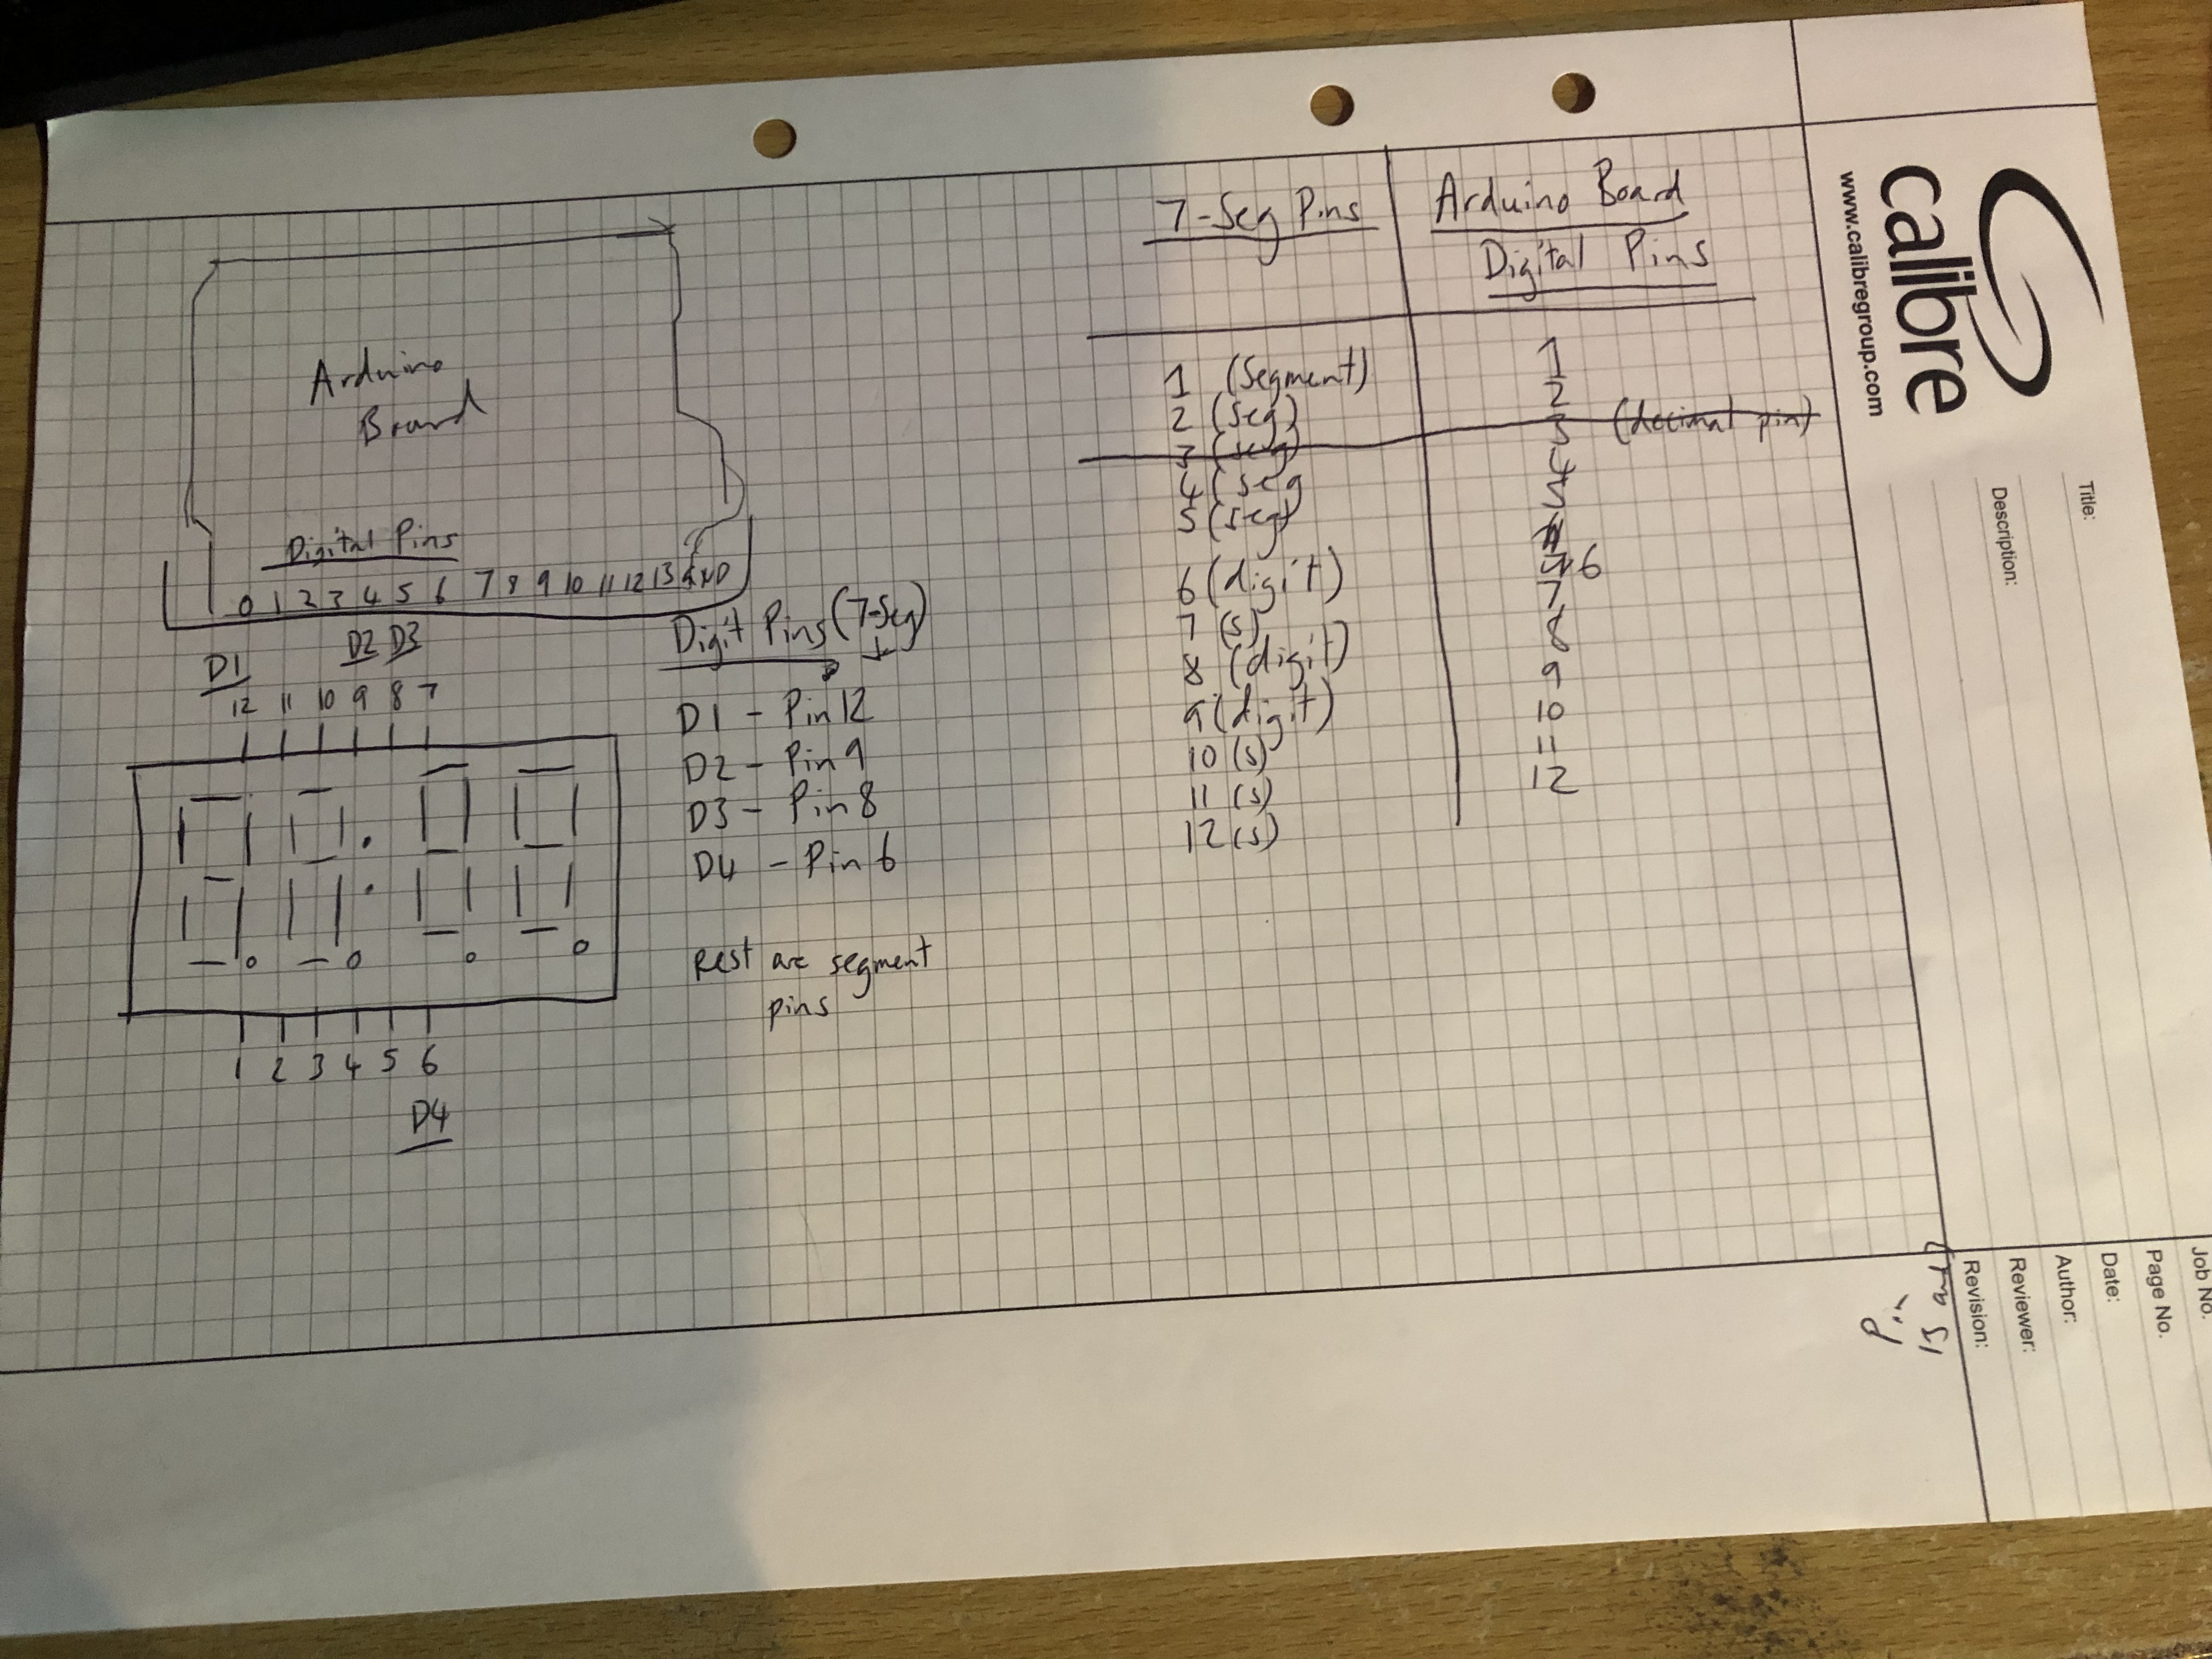 Arduino
Board
Digital Pins
0 1 2 3 4 5 6 7 8 9 10 11 12 13 GND
D1
D2 D3
12 11 10 9 8 7
1 2 3 4 5 6
D4
Digit Pins (7-Seg)
D1 - Pin 12
D2 - Pin 9
D3 - Pin 8
D4 - Pin 6
Rest are segment
pins
7-Seg Pins
Arduino Board
Digital Pins
1 (Segment) 1
2 (seg) 2
3 (seg) 3 (decimal pin)
4 (seg 4
5 (seg)
6 (digit) 6
7 (s) 7
8 (digit) 8
9 (digit) 9
10 (s) 10
11 (s) 11
12 (s) 12
calibre
www.calibregroup.com
Title:
Description:
Job No.
Page No.
Date:
Author:
Reviewer:
Revision: